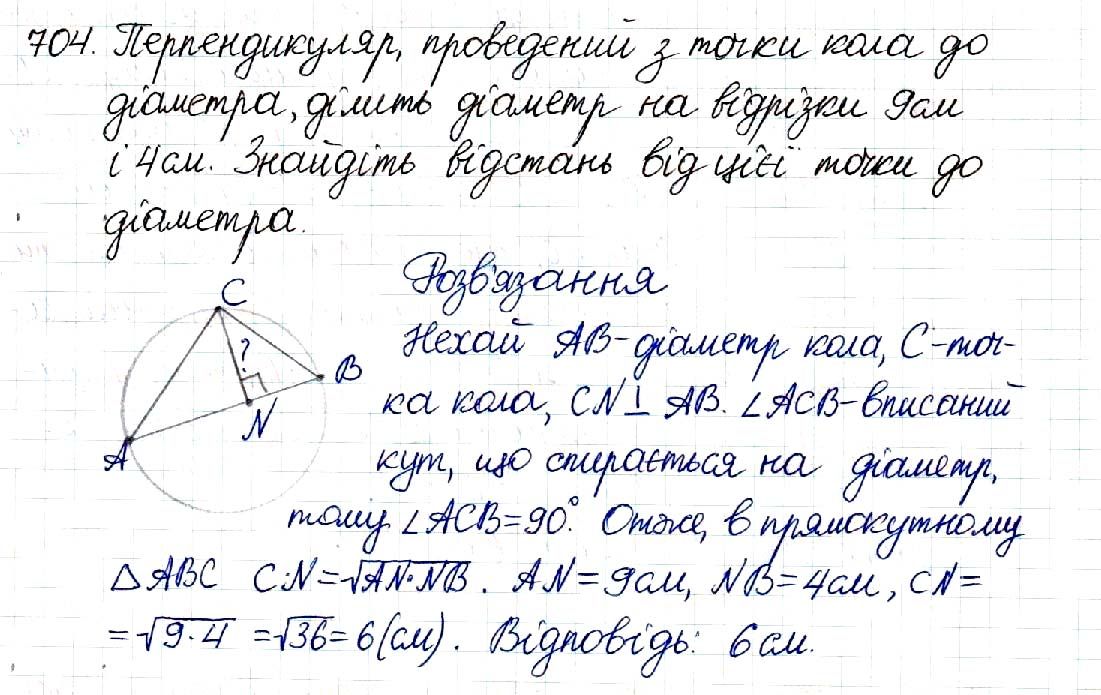 704. Перпендикуляр, проведений з точки кола до
діаметра, ділить діаметр на відрізки 9см
і 4см. Знайдіть відстань від цієї точки до
діаметра.
Розв'язання
C
?
B
N
A
Нехай AB-діаметр кола, C-точ-
ка кола, CN⊥AB. ∠ACB-вписаний
кут, що спирається на діаметр,
тому ∠ACB=90°. Отже, в прямокутному
△ABC CN=√AN·NB. AN=9см, NB=4см, CN=
=√9·4 =√36=6(см). Відповідь: 6см.